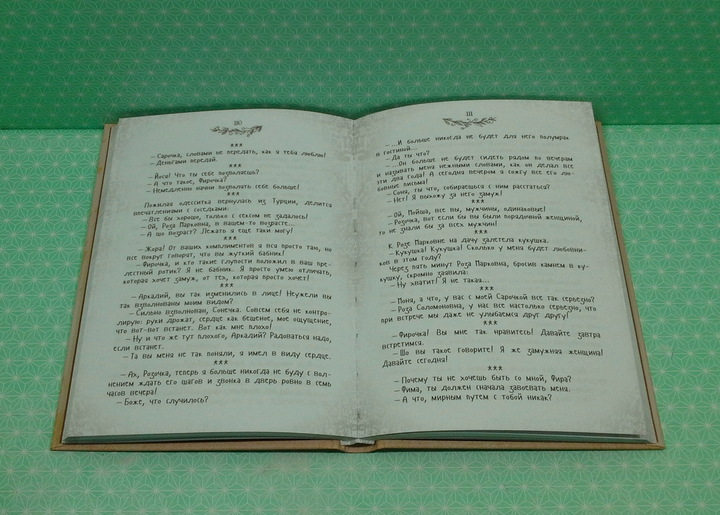 110
***
— Сарочка, словами не передать, как я тебя люблю!
— Деньгами передай.
***
— Яша! Что ты себе позволяешь?
— А что такое, Фирочка?
— Немедленно начни позволять себе больше!
***
Пожилая одесситка вернулась из Турции, делится
впечатлениями с соседками:
— Все бы хорошо, только с сексом не задалось!
— Ой, Роза Марковна, в вашем-то возрасте...
— А шо возраст? Лежать я еще таки могу!
***
— Жора! От ваших комплиментов я вся просто таю, но
все вокруг говорят, что вы жуткий бабник!
— Фирочка, и кто такие глупости положил в ваш пре-
лестный ротик? Я не бабник. Я просто умею отличать,
которая хочет замуж, от тех, которая просто хочет!
***
— Аркадий, вы так изменились в лице! Неужели вы
так взволнованы моим видом?
— Сильно взволнован, Сонечка. Совсем себя не контро-
лирую: руки дрожат, сердце как бешеное, мое ощущение,
что вот-вот встанет. Вот как мне плохо!
— Ну и что же тут плохого, Аркадий? Радоваться надо,
если встанет.
— Та вы меня не так поняли, я имел в виду сердце.
***
— Ах, Розочка, теперь я больше никогда не буду с вол-
нением ждать его шагов и звонка в дверь ровно в семь
часов вечера!
— Боже, что случилось?
111
— ...И больше никогда не будет для него полумрак
в гостиной...
— Да ты что?
— ...Он больше не будет сидеть рядом по вечерам
и называть меня нежными словами, как он делал все
эти два года! А сегодня вечером я сожгу все его лю-
бовные письма!
— Соня, ты что, собираешься с ним расстаться?
— Нет! Я выхожу за него замуж!
***
— Ой, Мойша, все вы, мужчины, одинаковые!
— Розочка, вот если бы вы были порядочной женщиной,
то не знали бы за всех мужчин!
***
К Розе Марковне на дачу залетела кукушка.
— Кукушка! Кукушка! Сколько у меня будет любовни-
ков в этом году?
Через пять минут Роза Марковна, бросив камнем в ку-
кушку, скромно заявила:
— Ну хватит! Я не такая...
***
— Моня, а что, у вас с моей Сарочкой все так серьезно?
— Роза Соломоновна, у нас все настолько серьезно, что
при встрече мы даже не улыбаемся друг другу!
***
— Фирочка! Вы мне так нравитесь! Давайте завтра
встретимся.
— Шо вы такое говорите! Я же замужняя женщина!
Давайте сегодня!
***
— Почему ты не хочешь быть со мной, Фира?
— Фима, ты должен сначала завоевать меня.
— А что, мирным путем с тобой никак?